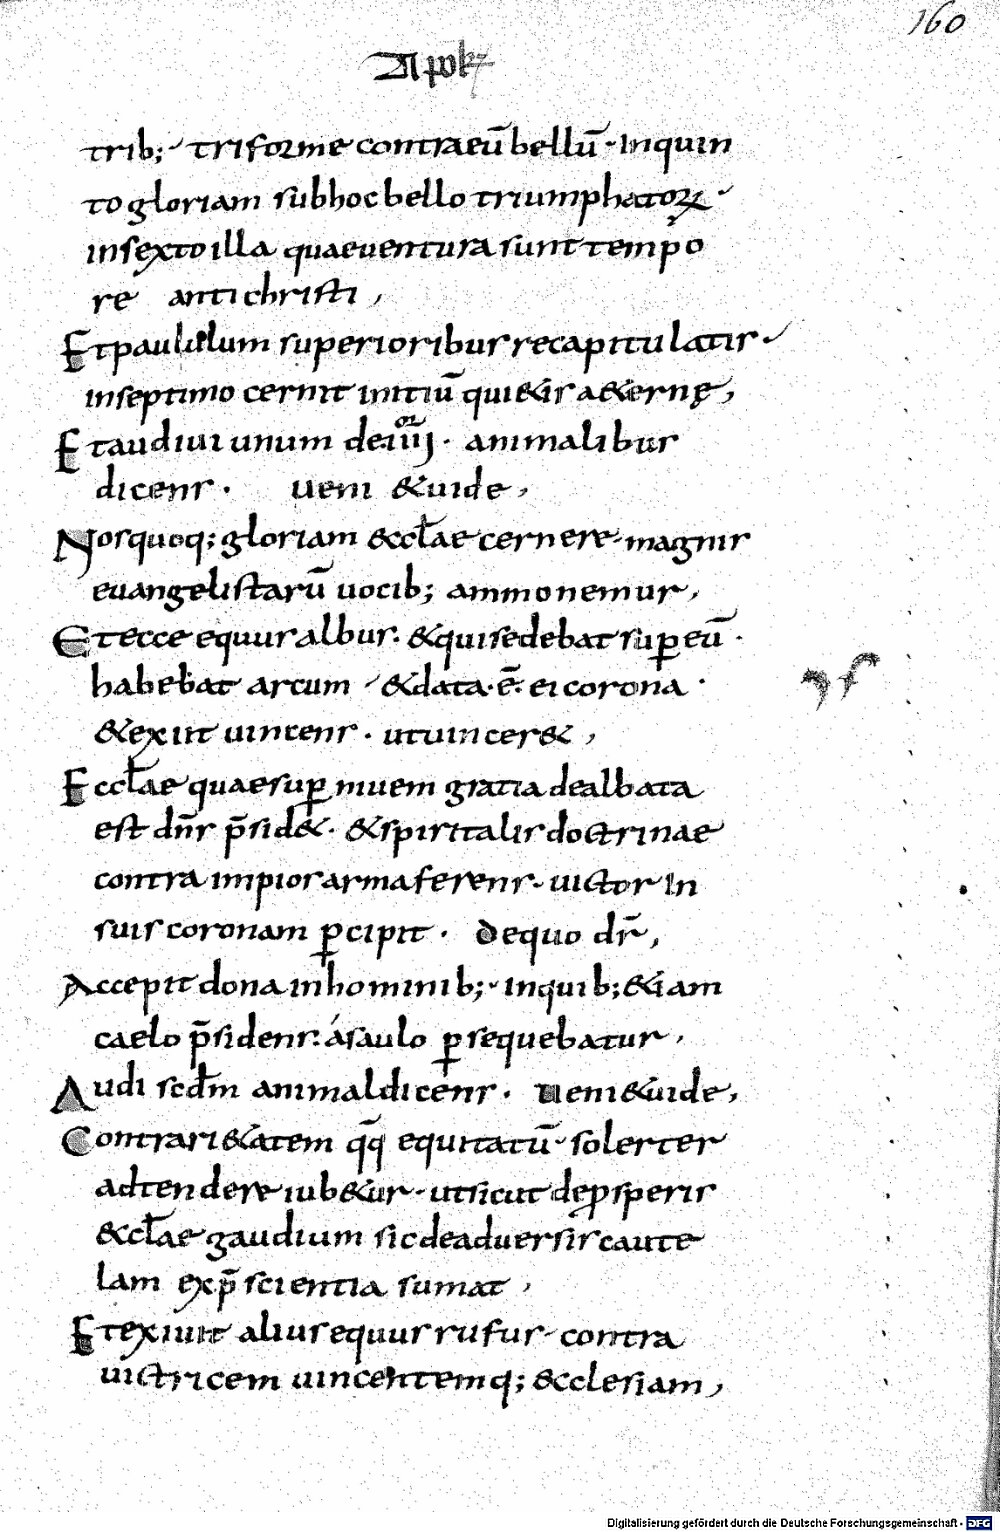 160
Apok
trib; triforme contra eū bellū · In quin
to gloriam sub hoc bello triumphatoꝝ
in sexto illa quae ventura sunt tempo
re antichristi,
Et paululum superioribus recapitulatis ·
in septimo cernit initiū qui&is a&ernę,
Et audivi unum de iiiior · animalibus
dicens · ueni & uide,
Nos quoq; gloriam &cclae cernere magnis
evangelistarū uocib; ammonemur,
Et ecce equus albus · & qui sedebat sup̲ eū ·
habebat arcum & data · ē · ei corona ·
& exiit uincens · ut uincer&,
Ecclae quae sup̲ niuem gratia dealbata
est dn̄s p̄sid& · & spiritalis doctrinae
contra impios arma ferens · uictor In
suis coronam p̲cipit · de quo dr̄,
Accepit dona in hominib; · in quib; &iam
caelo p̄sidens · á saulo p̲sequebatur,
Audi scdm animal dicens · ueni & uide,
Contrari&atem q̄q̄ equitatū solerter
adtendere iub&ur · ut sicut de ꝓsperis
&clae gaudium sic de aduersis caute
lam ex p̄scientia sumat,
Et exiuit alius equus rufus · contra
uictricem uincentemq; &cclesiam,
Digitalisierung gefördert durch die Deutsche Forschungsgemeinschaft - DFG